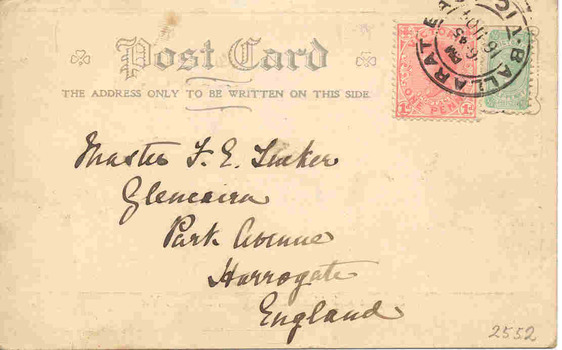 Post Card
THE ADDRESS ONLY TO BE WRITTEN ON THIS SIDE.
BALLARAT EAST VIC
6 45 PM
ONE PENNY
Master F. E. Tucker
Glencairn
Park Avenue
Harrogate
England
2552